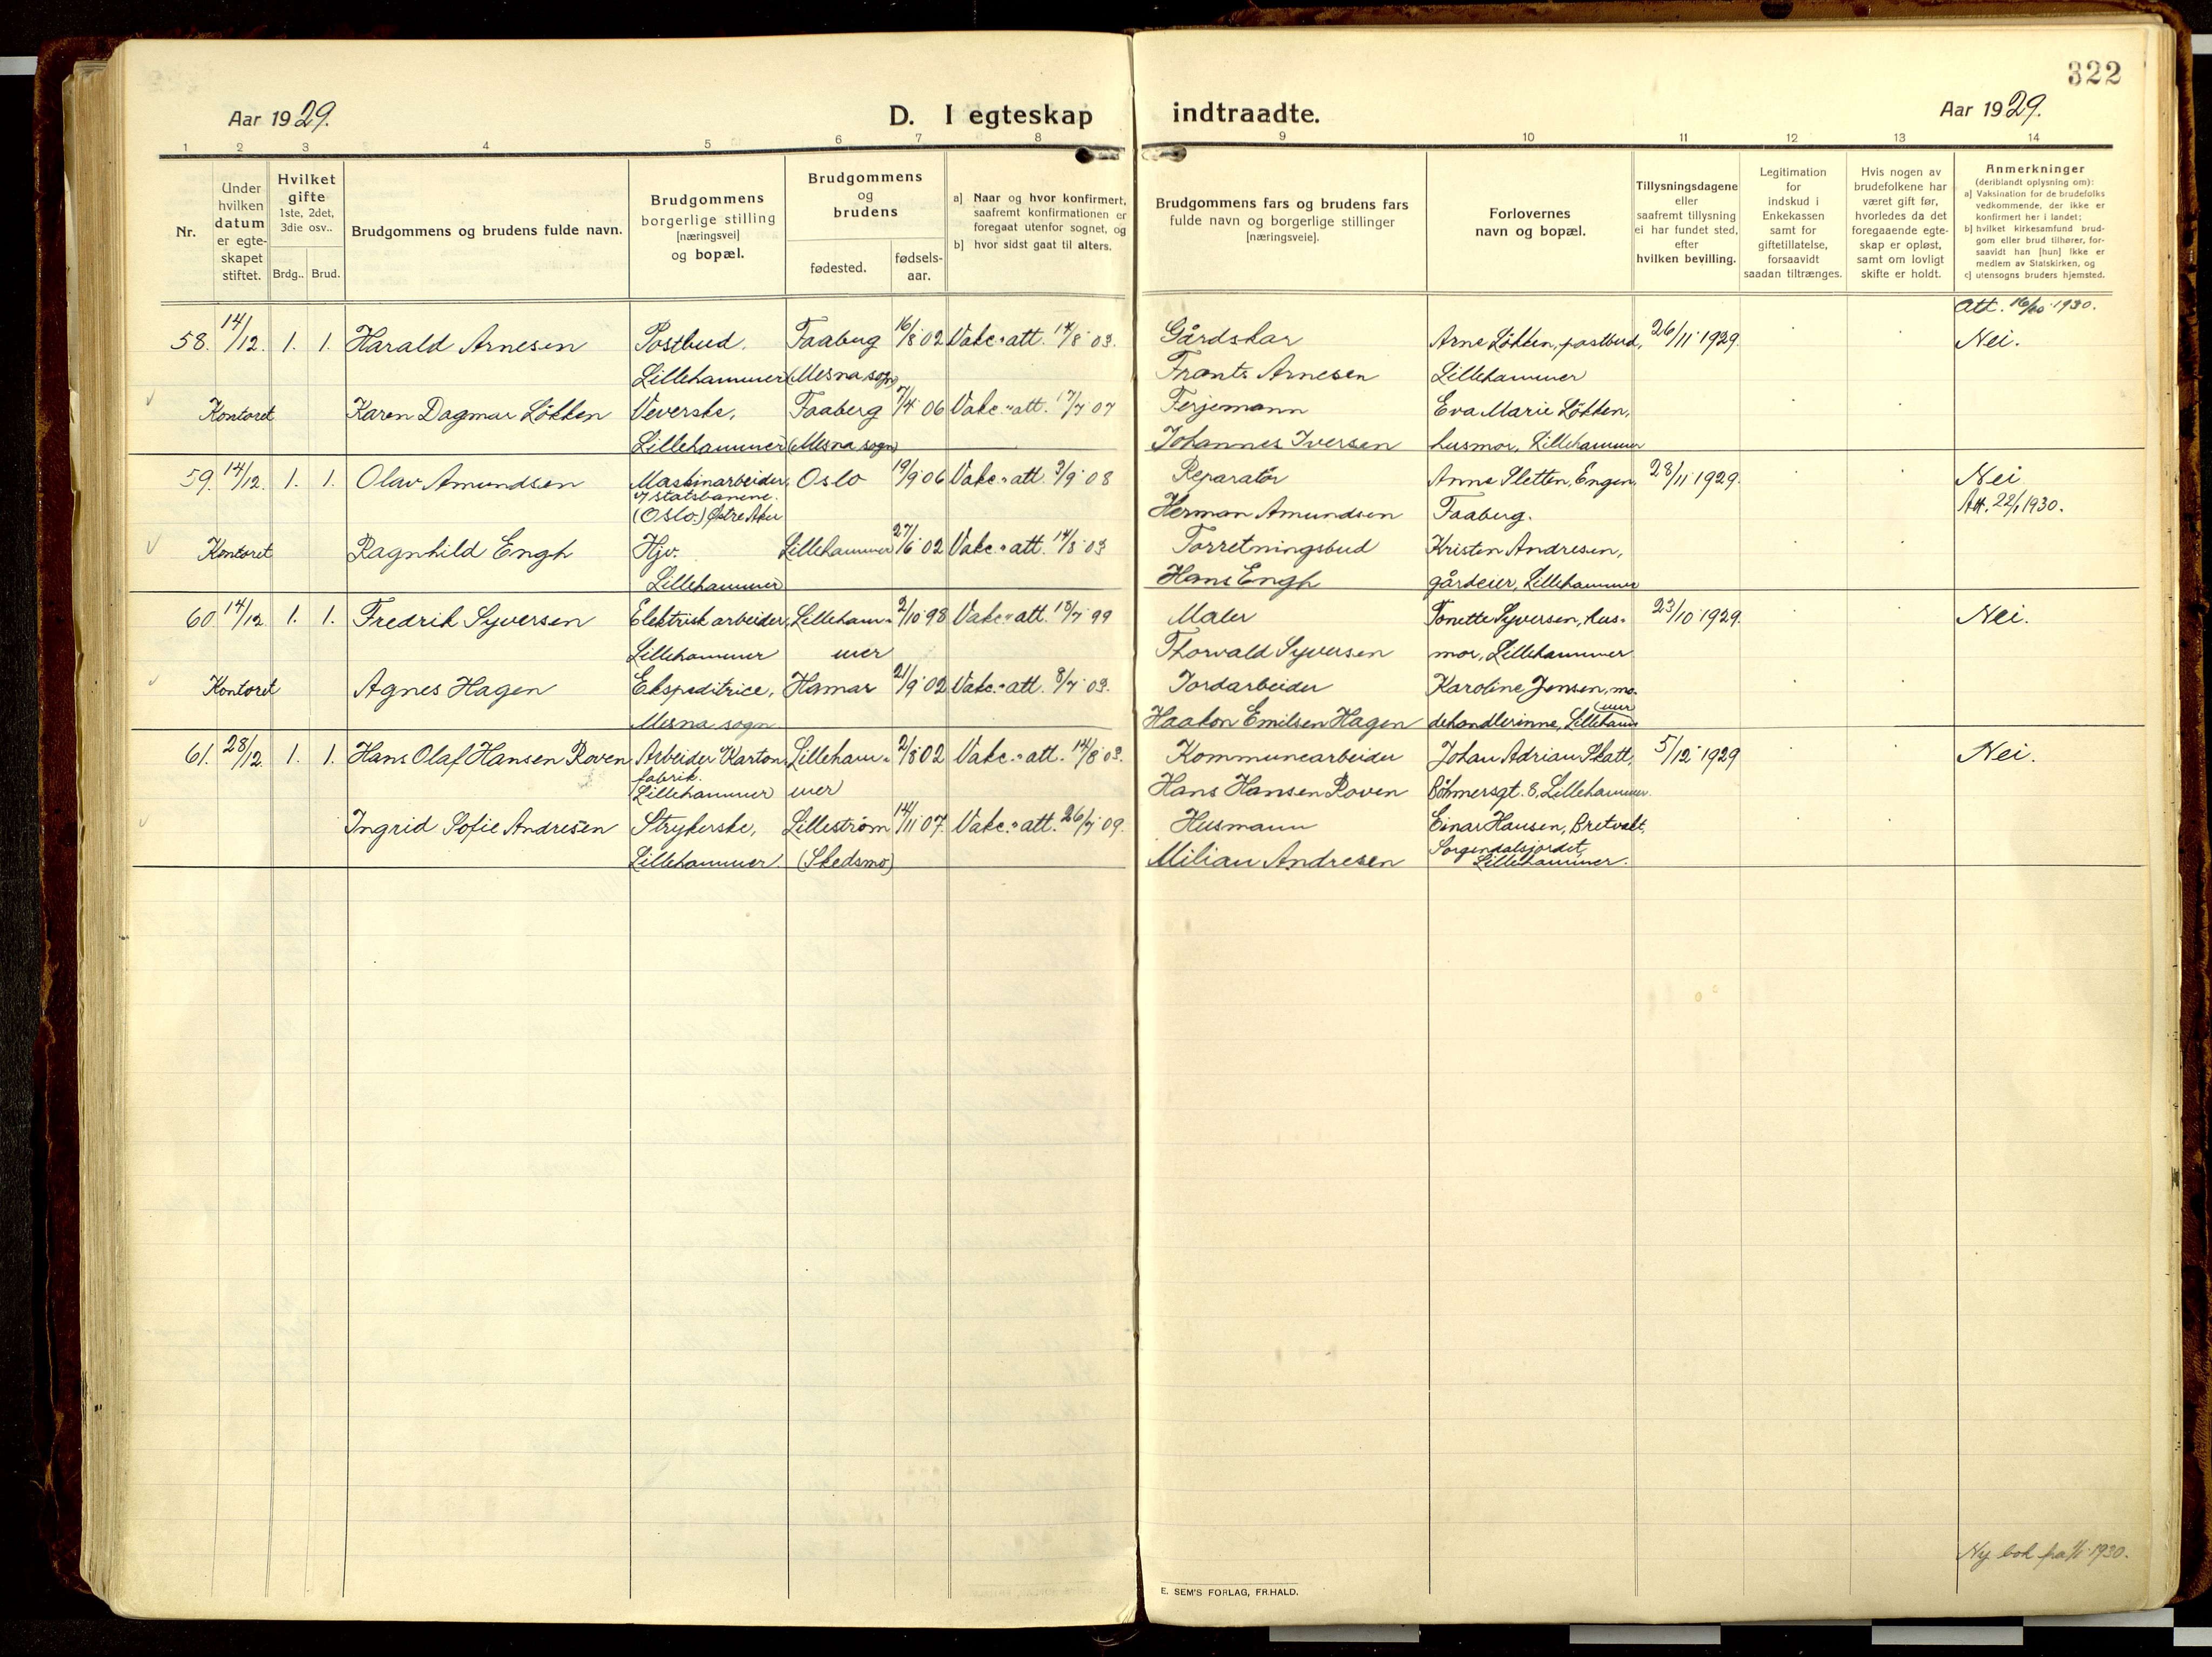 322
Aar 1929.
D. I egteskap indtraadte.
Aar 1929.
1 2 3 4 5 6 7 8 9 10 11 12 13 14
Nr.
Under hvilken datum er egteskapet stiftet.
Hvilket gifte 1ste, 2det, 3die osv..
Brdg.. Brud.
Brudgommens og brudens fulde navn.
Brudgommens borgerlige stilling [næringsvei] og bopæl.
Brudgommens og brudens
fødested.
fødsels-aar.
a) Naar og hvor konfirmert, saafremt konfirmationen er foregaat utenfor sognet, og
b) hvor sidst gaat til alters.
Brudgommens fars og brudens fars fulde navn og borgerlige stillinger [næringsveie].
Forlovernes navn og bopæl.
Tillysningsdagene eller saafremt tillysning ei har fundet sted, efter hvilken bevilling.
Legitimation for indskud i Enkekassen samt for giftetillatelse, forsaavidt saadan tiltrænges.
Hvis nogen av brudefolkene har været gift før, hvorledes da det foregaaende egteskap er opløst, samt om lovligt skifte er holdt.
Anmerkninger
(deriblandt oplysning om):
a) Vaksination for de brudefolks vedkommende, der ikke er konfirmert her i landet;
b) hvilket kirkesamfund brudgom eller brud tilhører, forsaavidt han [hun] ikke er medlem av Statskirken, og
c) utensogns bruders hjemsted.
Att. 16/10 1930.
58. 14/12. 1. 1. Harald Arnesen Postbud. Faaberg 16/8 02 Vakc. att. 14/8 03. Gårdskar Arne Løkken, postbud, 26/11 1929. Nei.
Lillehammer (Mesna sogn) Frants Arnesen Lillehammer
Kontoret Karen Dagmar Løkken Veverske, Faaberg 7/4 06 Vakc. att. 17/7 07 Ferjemann Eva Marie Løkken,
Lillehammer (Mesna sogn) Johannes Iversen husmor, Lillehammer
59. 14/12. 1. 1. Olav Amundsen Maskinarbeider Oslo 19/9 06 Vakc. att. 3/9 08 Reparatør Anna Sletten, Engen, 28/11 1929. Nei
v/statsbanene.
(Oslo.) Østre Aker Herman Amundsen Faaberg. Att. 22/1 1930.
Kontoret Ragnhild Engh Hjv. Lillehammer 27/6 02 Vakc. att. 14/8 03 Forretningsbud Kristen Andresen,
Lillehammer Hans Engh gårdeier, Lillehammer
60. 14/12. 1. 1. Fredrik Syversen Elektrisk arbeider, Lilleham- 2/10 98 Vakc. att. 18/7 99 Maler Tonette Syversen, hus- 23/10 1929. Nei.
Lillehammer mer Thorvald Syversen mor, Lillehammer.
Kontoret Agnes Hagen Ekspeditrice, Hamar 21/9 02 Vakc. att. 8/7 03. Jordarbeider Karoline Jensen, mo-
Mesna sogn Haakon Emilsen Hagen dehandlerinne, Lillehammer
61. 28/12. 1. 1. Hans Olaf Hansen Roven Arbeider v/Karton- Lilleham- 2/8 02 Vakc. att. 14/8 03. Kommunearbeider Johan Adrian Skatt, 5/12 1929 Nei.
fabrik.
Lillehammer mer Hans Hansen Roven Bøhmersgt. 8, Lillehammer.
Ingrid Sofie Andresen Strykerske, Lillestrøm 14/11 07. Vakc. att. 26/7 09. Husmann Einar Hansen, Bretvedt,
Lillehammer. (Skedsmo) Milian Andresen Sorgendalsjordet, Lillehammer.
Ny bok fra 1/1 1930.
E. SEM'S FORLAG, FR.HALD.